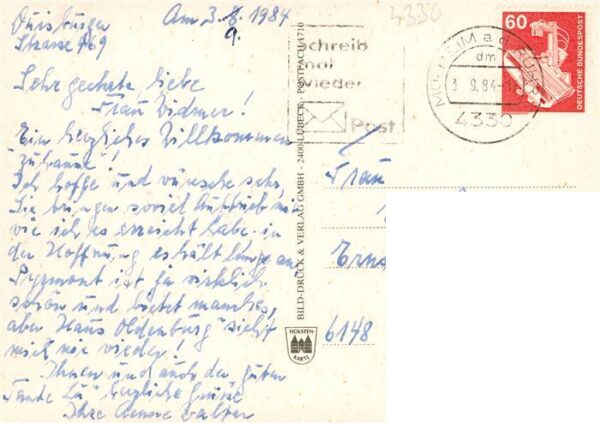 Duisburger
Strasse 769
Am 3. 8. 1984
9.
4330
Sehr geehrte liebe
Frau Widmer!
Ein herzliches Willkommen
"zuhause"!
Ich hoffe und wünsche sehr,
Sie bringen soviel Auftrieb mit
wie ich es erreicht habe. in
der Hoffnung es hält lange an
Pyrmont ist ja wirklich
schön und bietet manches,
aber "Haus Oldenburg" sieht
mich nie wieder!
Ihnen und auch der guten
Tante herzliche Grüsse
Ihre Walter
Schreib
mal
wieder
Post
MÜLHEIM a d RUHR
dm
3. 9. 84
4330
60
DEUTSCHE BUNDESPOST
BILD-DRUCK & VERLAG GMBH - 2400 LÜBECK - POSTFACH 1710
HOLSTEN
KARTE
Frau
Erns
6148